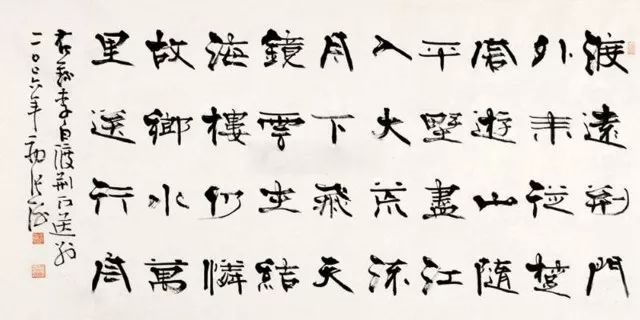 渡遠荆門
外来從楚
國遊山隨
平墅盡江
入大荒流
月下飛天
鏡雲生結
海樓仍憐
故鄉水萬
里送行舟
李白渡荆门送别
二〇〇六年 张海